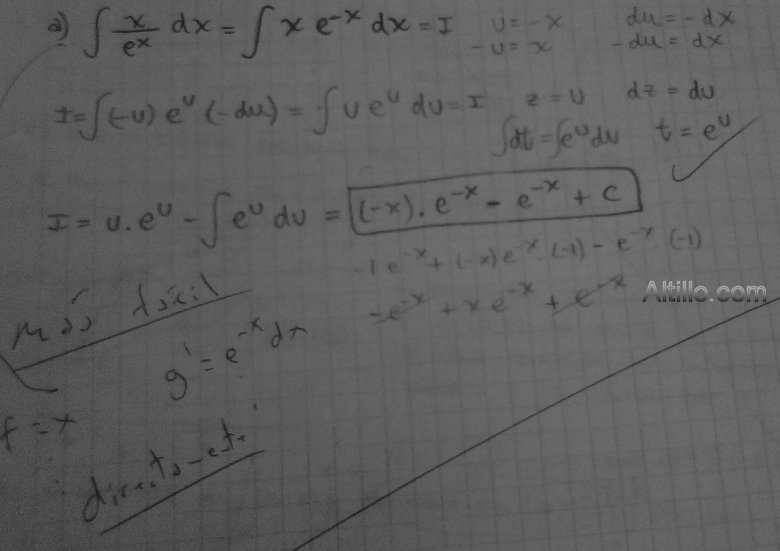 a) ∫ x/eˣ dx = ∫ x e⁻ˣ dx = I   u = -x   du = -dx
-u = x   -du = dx
I = ∫(-u) eᵘ (-du) = ∫ u eᵘ du = I   z = u   dz = du
∫dt = ∫eᵘ du   t = eᵘ
I = u.eᵘ - ∫eᵘ du = (-x).e⁻ˣ - e⁻ˣ + c
-1 e⁻ˣ + (-x)e⁻ˣ (-1) - e⁻ˣ (-1)
-e⁻ˣ + x e⁻ˣ + e⁻ˣ
Altillo.com
más fácil
g' = e⁻ˣ dx
f = x